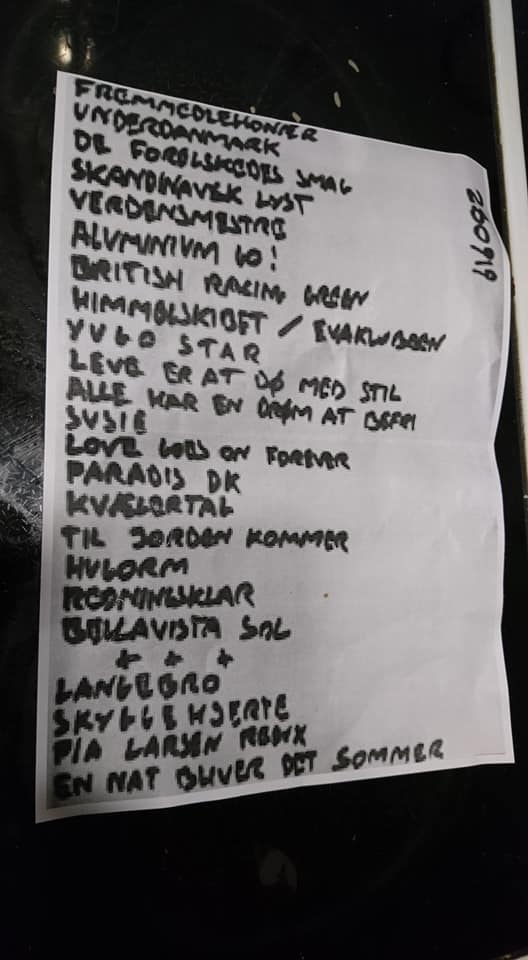 FREMMEDLEHONÆR
UNDERDANMARK
DE FORELSKEDES SMAG
SKANDINAVISK LYST
VERDENSMESTRE
ALUMINIUM GO!
BRITISH RACING GREEN
HIMMELSKIBET / EVAKUEREN
YUGO STAR
LEVE ER AT DØ MED STIL
ALLE HAR EN DRØM AT BEFRI
SUSIE
LOVE GOES ON FOREVER
PARADIS DK
KVÆLERTAG
TIL JORDEN KOMMER
HULORM
REDNINGSKLAR
BELLAVISTA SOL
+ + +
LANGEBRO
SKYGGEHJERTE
PIA LARSEN REDUX
EN NAT BLIVER DET SOMMER
260919